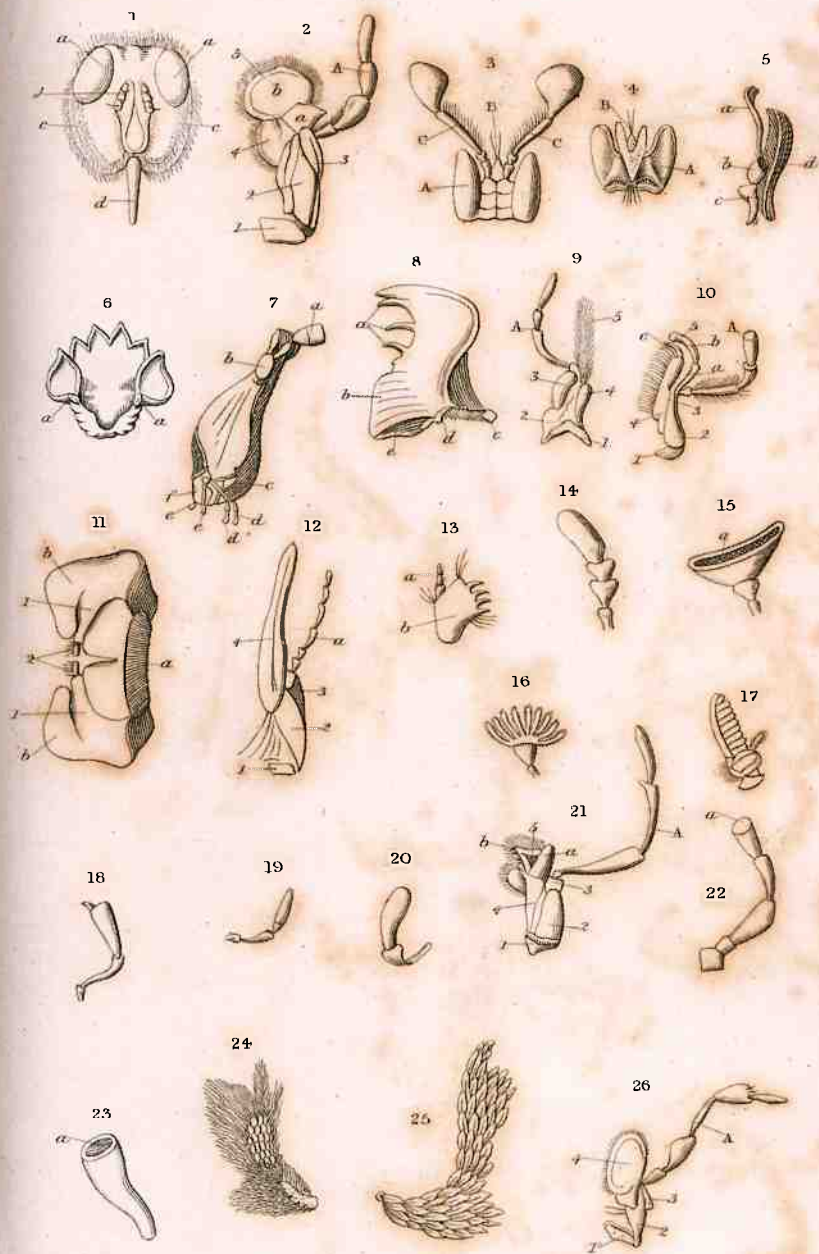 1
a
a
1
c
c
d
2
A
5
b
a
4
3
2
1
3
B
C
C
A
4
B
A
5
a
b
d
c
6
a
a
7
a
b
f
c
e
e
d
d
8
a
b
e
d
c
9
A
5
3
4
2
1
10
5
A
c
b
a
3
4
2
1
11
b
1
2
a
1
b
12
4
a
3
2
1
13
a
b
14
15
a
16
17
18
19
20
21
b
5
a
A
4
3
2
1
22
a
23
a
24
25
26
A
4
3
2
1